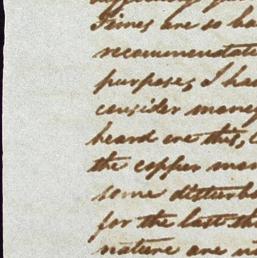 Times are so ha
recommendate
purposes, I had
consider money
heard ere this,
the copper man
some disturba
for the last th
nature are